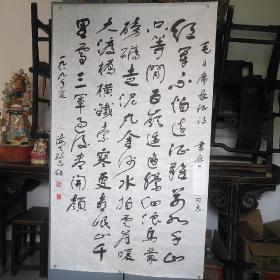 毛主席長征詩 書 同志
紅軍不怕遠征難萬水千山
只等閒五嶺逶迤騰細浪烏蒙
磅礴走泥丸金沙水拍雲崖暖
大渡橋橫鐵索寒更喜岷山千
里雪三軍過後尽開顏
一九八九年夏